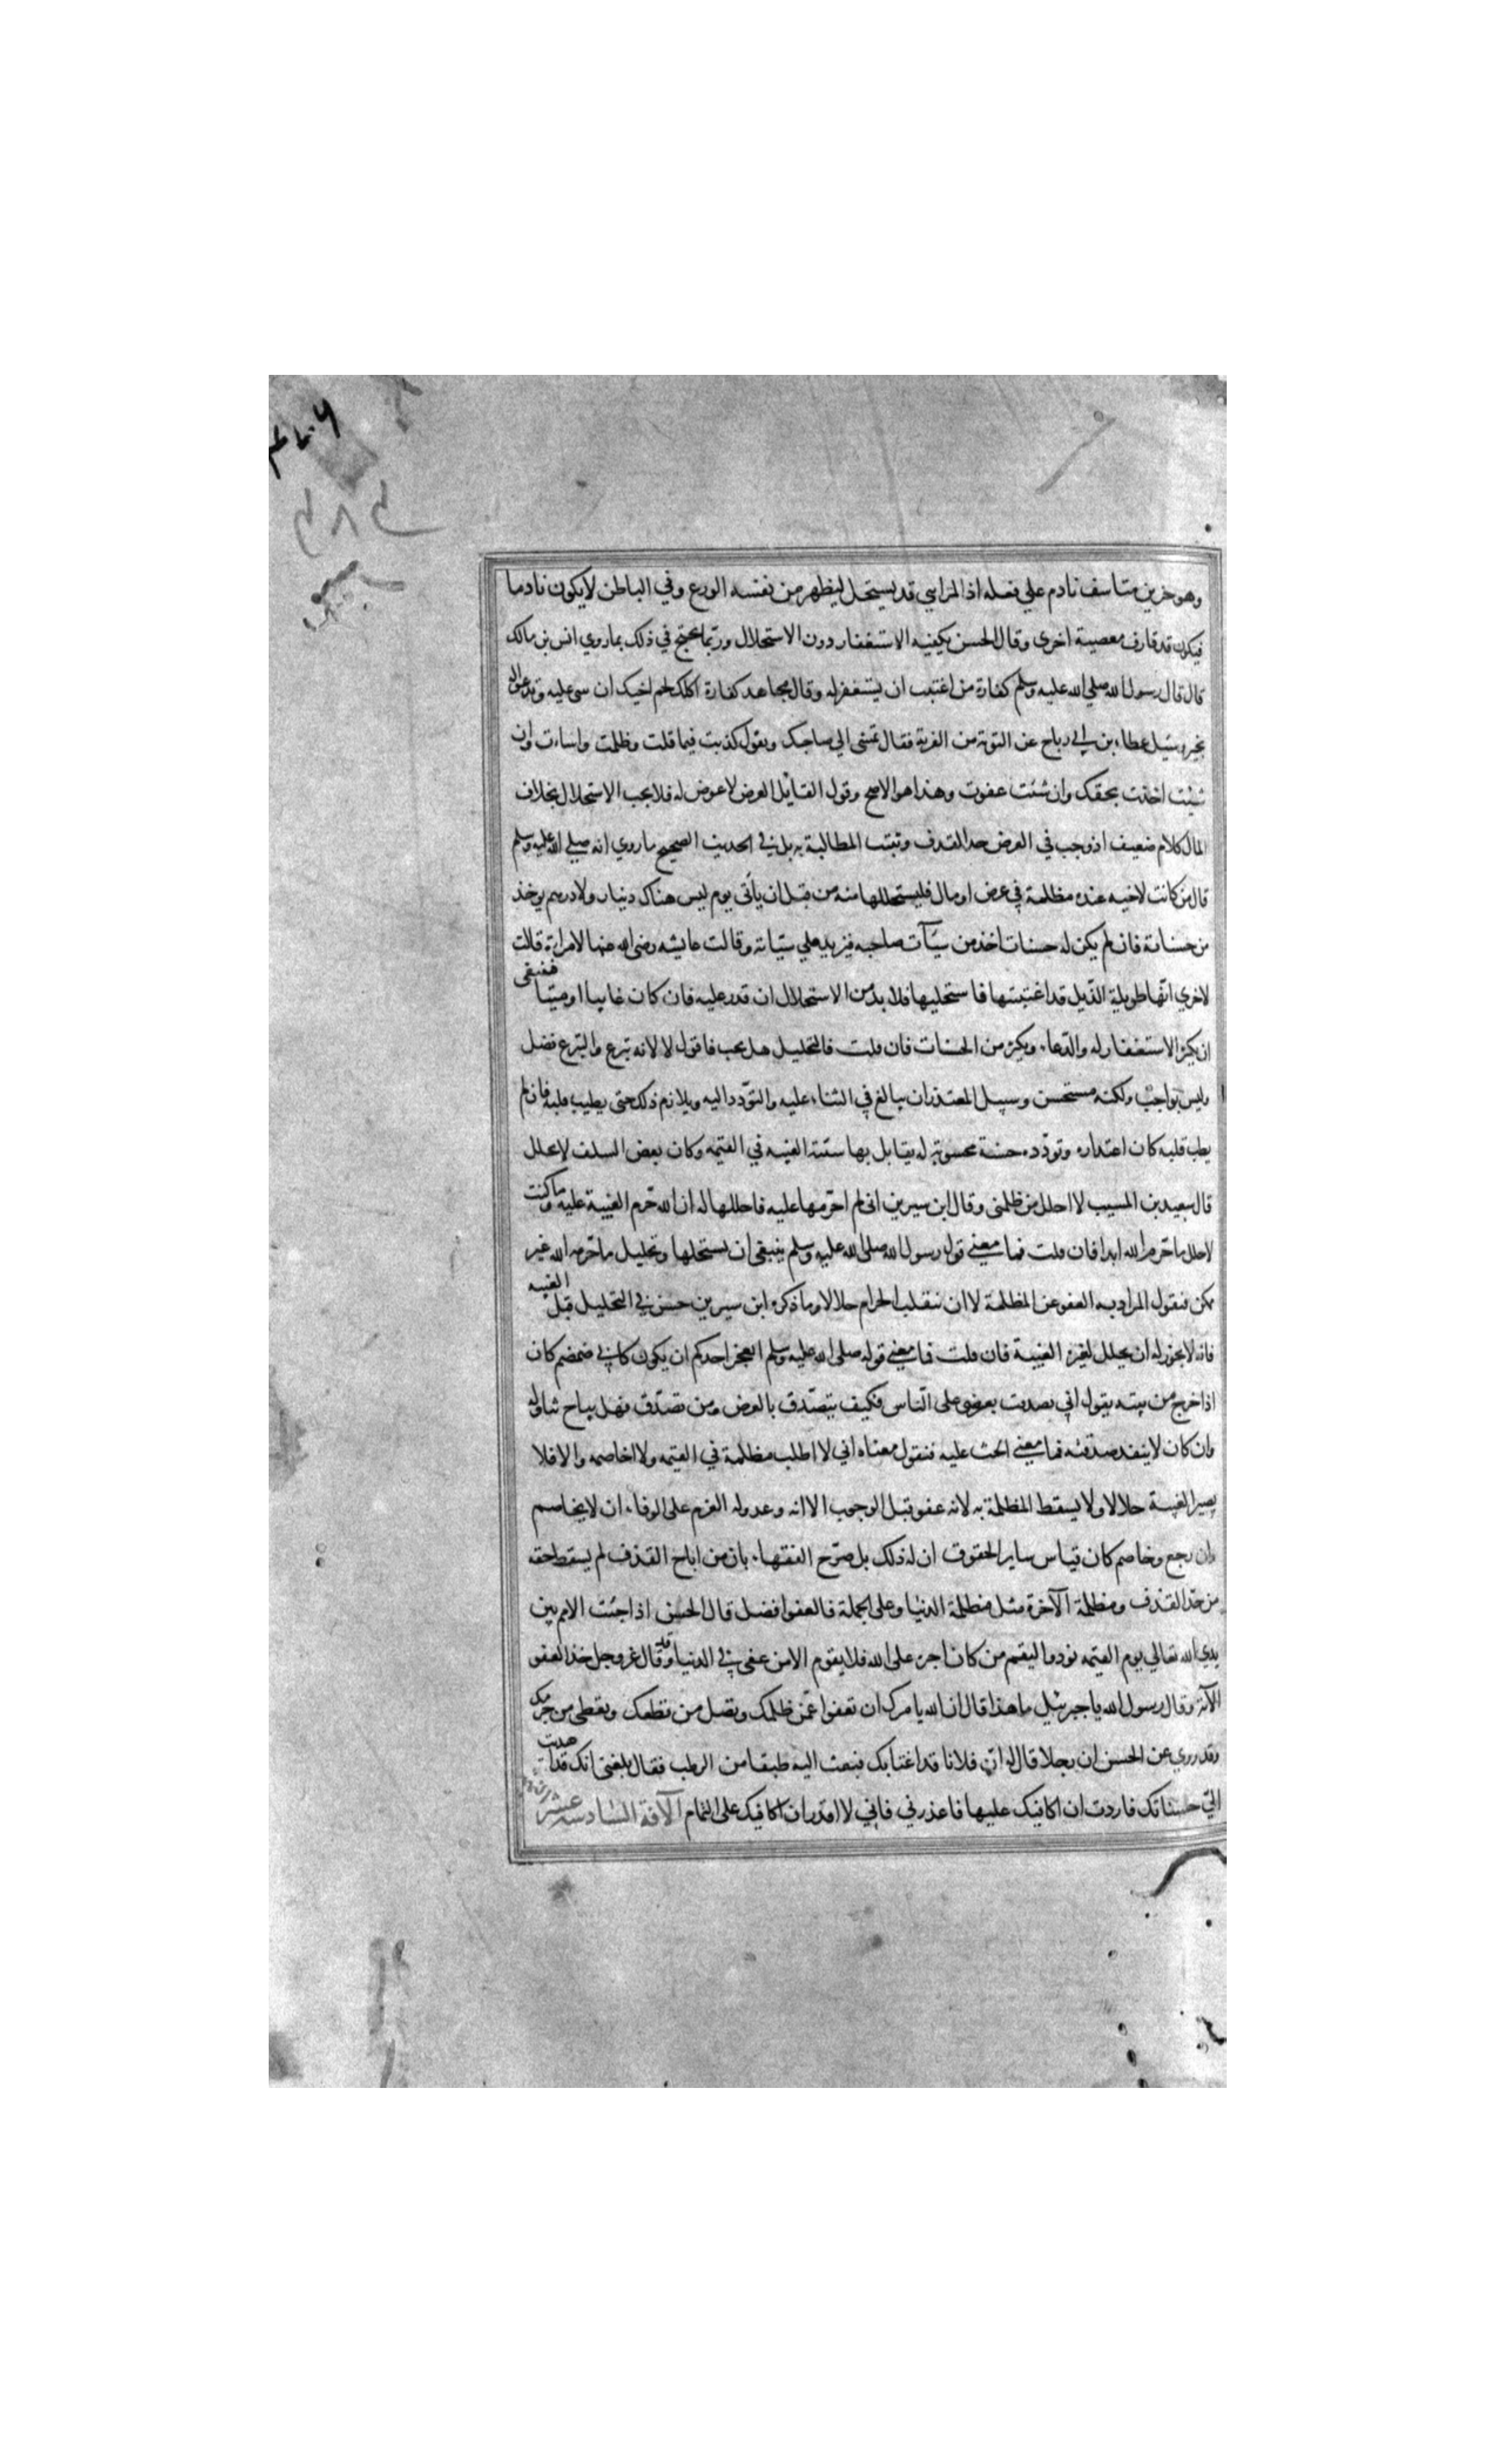 وهو حزين متاسف نادم علي فعله اذ المرايي قد يستحل ليظهر من نفسه الورع وفي الباطن لا يكون نادما
فيكون قد قارف معصية اخرى وقال الحسن يكفيه الاستغفار دون الاستحلال وربما يحتج في ذلك بما روي انس بن مالك
قال قال رسول الله صلي الله عليه وسلم كفارة من اغتبت ان يستغفر له وقال مجاهد كفارة اكلك لحم اخيك ان تثني عليه وتدعو له
بخير وسئيل عطاء بن ابي رباح عن التوبة من الفرية فقال تمشى الي صاحبك وتقول كذبت فيما قلت وظلمت واسات وان
شئيت اخذت بحقك وان شئت عفوت وهذا هو الاصح وقول القايل العرض لا عوض له فلا يجب الاستحلال بخلاف
المال كلام ضعيف اذ وجب في العرض حد القذف وتثبت المطالبة به بل في الحديث الصحيح ما روي انه صلي الله عليه وسلم
قال من كانت لاخيه عنده مظلمة في عرض او مال فليستحللها منه من قبل ان يأتى يوم ليس هناك دينار ولا درهم يوخذ
من حسناته فان لم يكن له حسنات اخذ من سيآت صاحبه فيزيد علي سيّاته وقالت عايشه رضى الله عنها لامراة قالت
لاخري انها طويلة الذيل قد اغتبتها فاستحليها فلا بد من الاستحلال ان قدر عليه فان كان غايبا او ميتا فينبغى
ان يكثر الاستغفار له والدعاء ويكثر من الحسنات فان قلت فالتحليل هل يجب فاقول لا لانه تبرع والتبرع فضل
وليس بواجب ولكنه مستحسن وسبيل المعتذر ان يبالغ في الثناء عليه والتودد اليه ويلازم ذلك حتى يطيب قلبه فان لم
يطب قلبه كان اعتذاره وتودده حسنة محسوبة له يقابل بها سيئة الغيبه في القيمه وكان بعض السلف لا يحلل
قال سعيد بن المسيب لا احلل من ظلمنى وقال ابن سيرين انى لم احرمها عليه فاحللها له ان الله حرم الغيبة عليه وما كنت
لاحلل ما حرم الله ابدا فان قلت فما معني قول رسول الله صلى الله عليه وسلم ينبغى ان يستحلها وتحليل ما حرمه الله غير
ممكن فنقول المراد به العفو عن المظلمة لا ان ينقلب الحرام حلالا وما ذكره ابن سيرين حسن في التحليل قبل الغيبه
فانه لا يجوز له ان يحلل لغيره الغيبة فان قلت فما معني قوله صلى الله عليه وسلم ايعجز احدكم ان يكون كابي ضمضم كان
اذا خرج من بيته يقول اني تصدقت بعرضي على الناس فكيف يتصدق بالعرض ومن تصدق فهل يباح تناوله
وان كان لا ينفد صدقته فما معني الحث عليه فنقول معناه اني لا اطلب مظلمة في القيمه ولا اخاصمه والا فلا
يصير الغيبة حلالا ولا يسقط المظلمة به لانه عفو قبل الوجوب الا انه وعد وله العزم على الوفاء ان لا يخاصم
وان رجع وخاصم كان قياس ساير الحقوق ان له ذلك بل صرح الفقهاء بان من اباح القذف لم يسقط حقه
من حد القذف ومظلمة الآخرة مثل مظلمة الدنيا وعلى الجملة فالعفو افضل قال الحسن اذا جئت الامم بين
يدي الله تعالي يوم القيمه نودوا ليقم من كان اجره على الله فلا يقوم الا من عفى في الدنيا وقد قال عز وجل خذ العفو
الآية وقال رسول الله يا جبرئيل ما هذا قال ان الله يامرك ان تعفوا عمن ظلمك وتصل من قطعك وتعطى من حرمك
وقد روي عن الحسن ان رجلا قال له ان فلانا قد اغتابك فبعث اليه طبقا من الرطب فقال بلغنى انك قد اهديت
الي حسناتك فاردت ان اكافيك عليها فاعذرني فاني لا اقدر ان اكافيك على التمام الآفة السادسه عشر